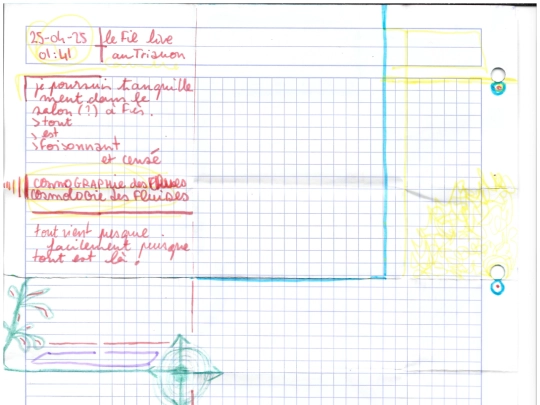 25-04-25
01:41
le Fil live
au Trianon
je poursuis tranquille
ment dans le
salon (?) à Fiès.
> tout
> est
> foisonnant
et censé
COSMOGRAPHIE des FLUIDES
COSMOLOGIE des FLUIDES
tout vient presque
facilement puisque
tout est là !